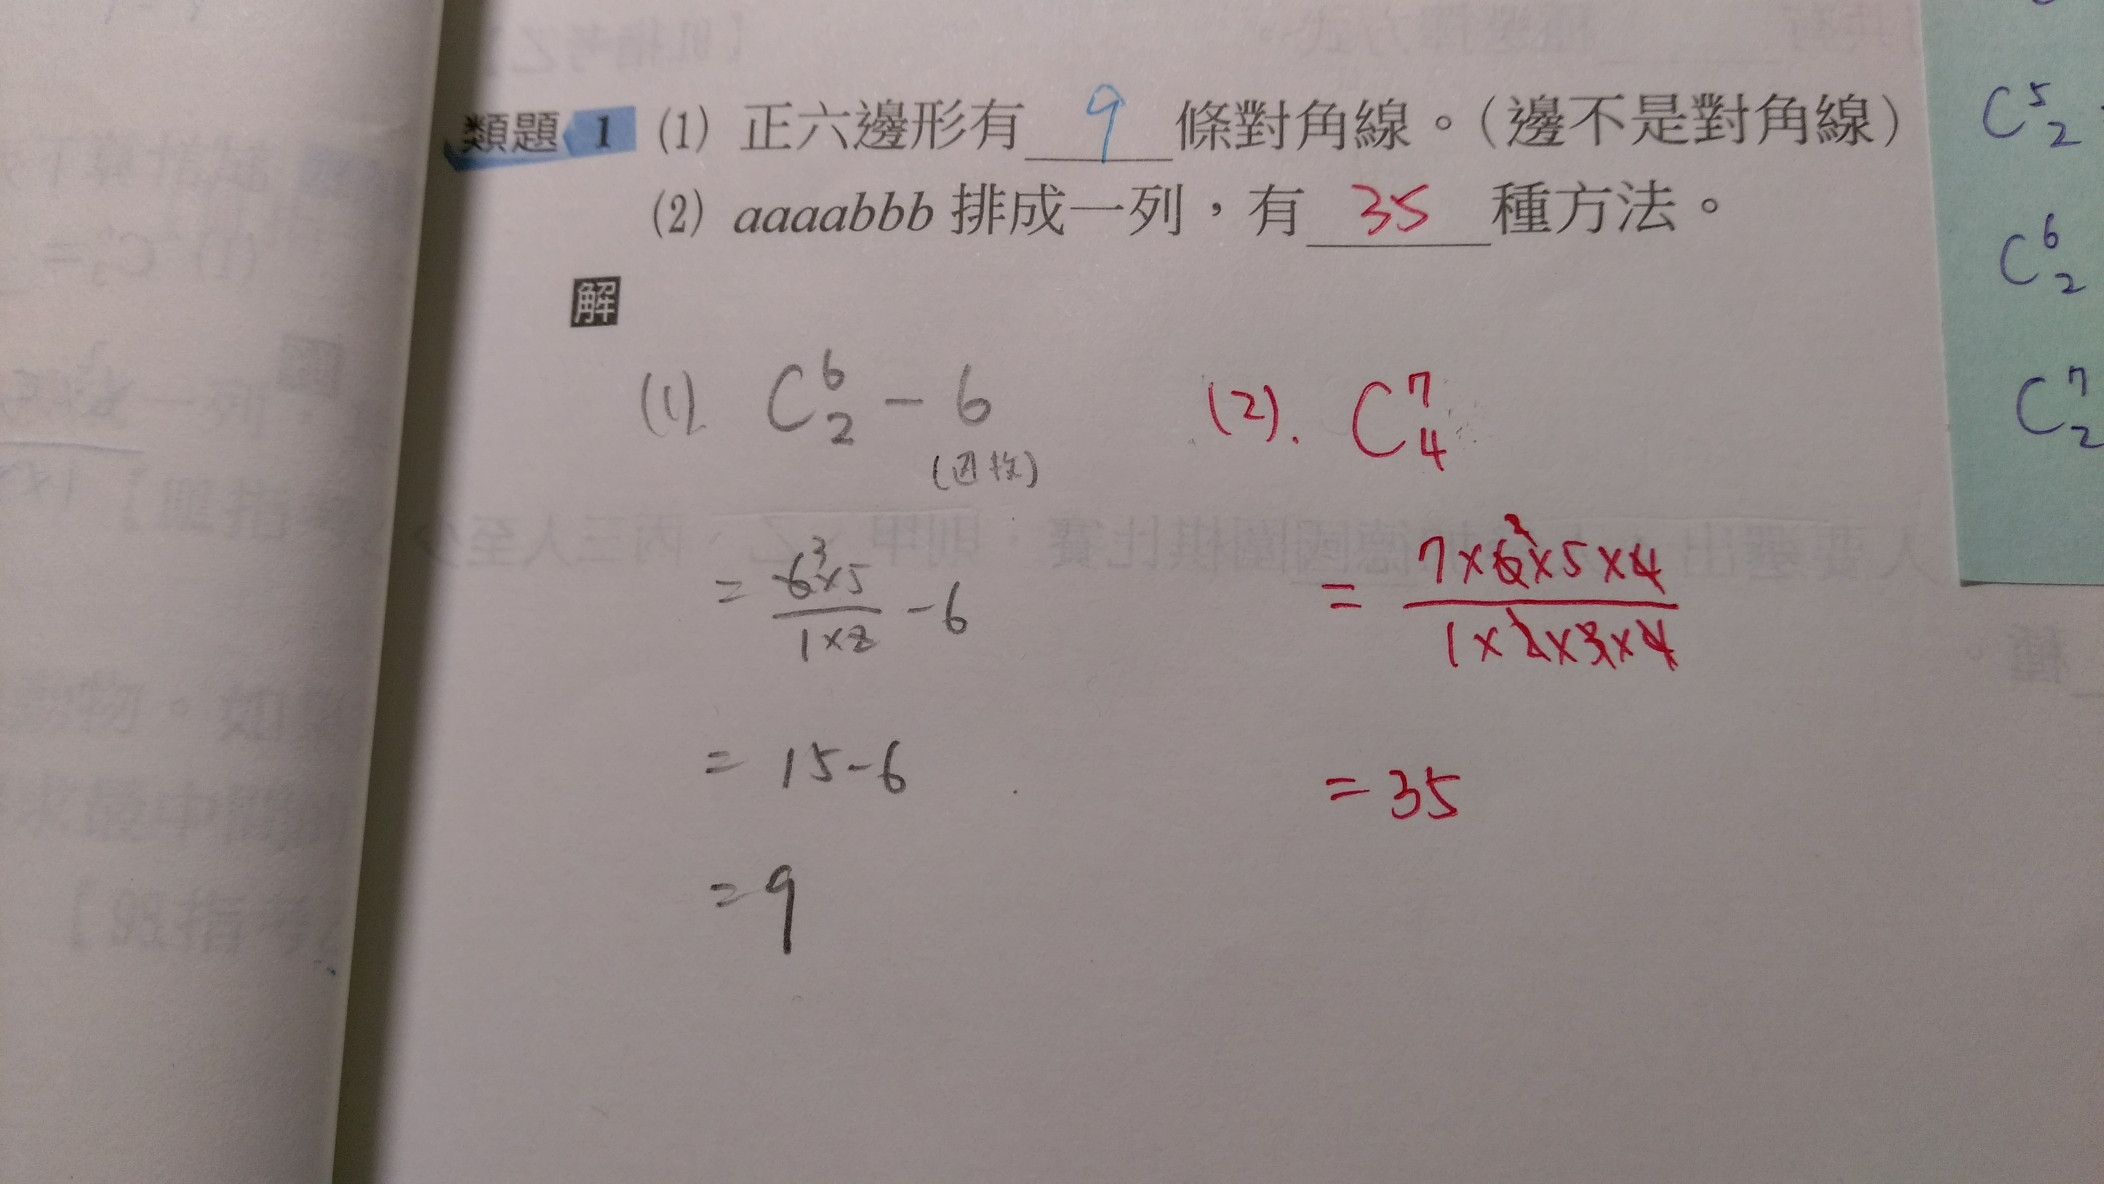 類題 1 (1) 正六邊形有 9 條對角線。(邊不是對角線)
(2) aaaabbb 排成一列，有 35 種方法。
解
(1). C⁶₂ - 6
= 6³×5 / 1×2 - 6
= 15-6
= 9
(2). C⁷₄
= 7×6×5×4 / 1×2×3×4
= 35
C⁵₂
C⁶₂
C⁷₂